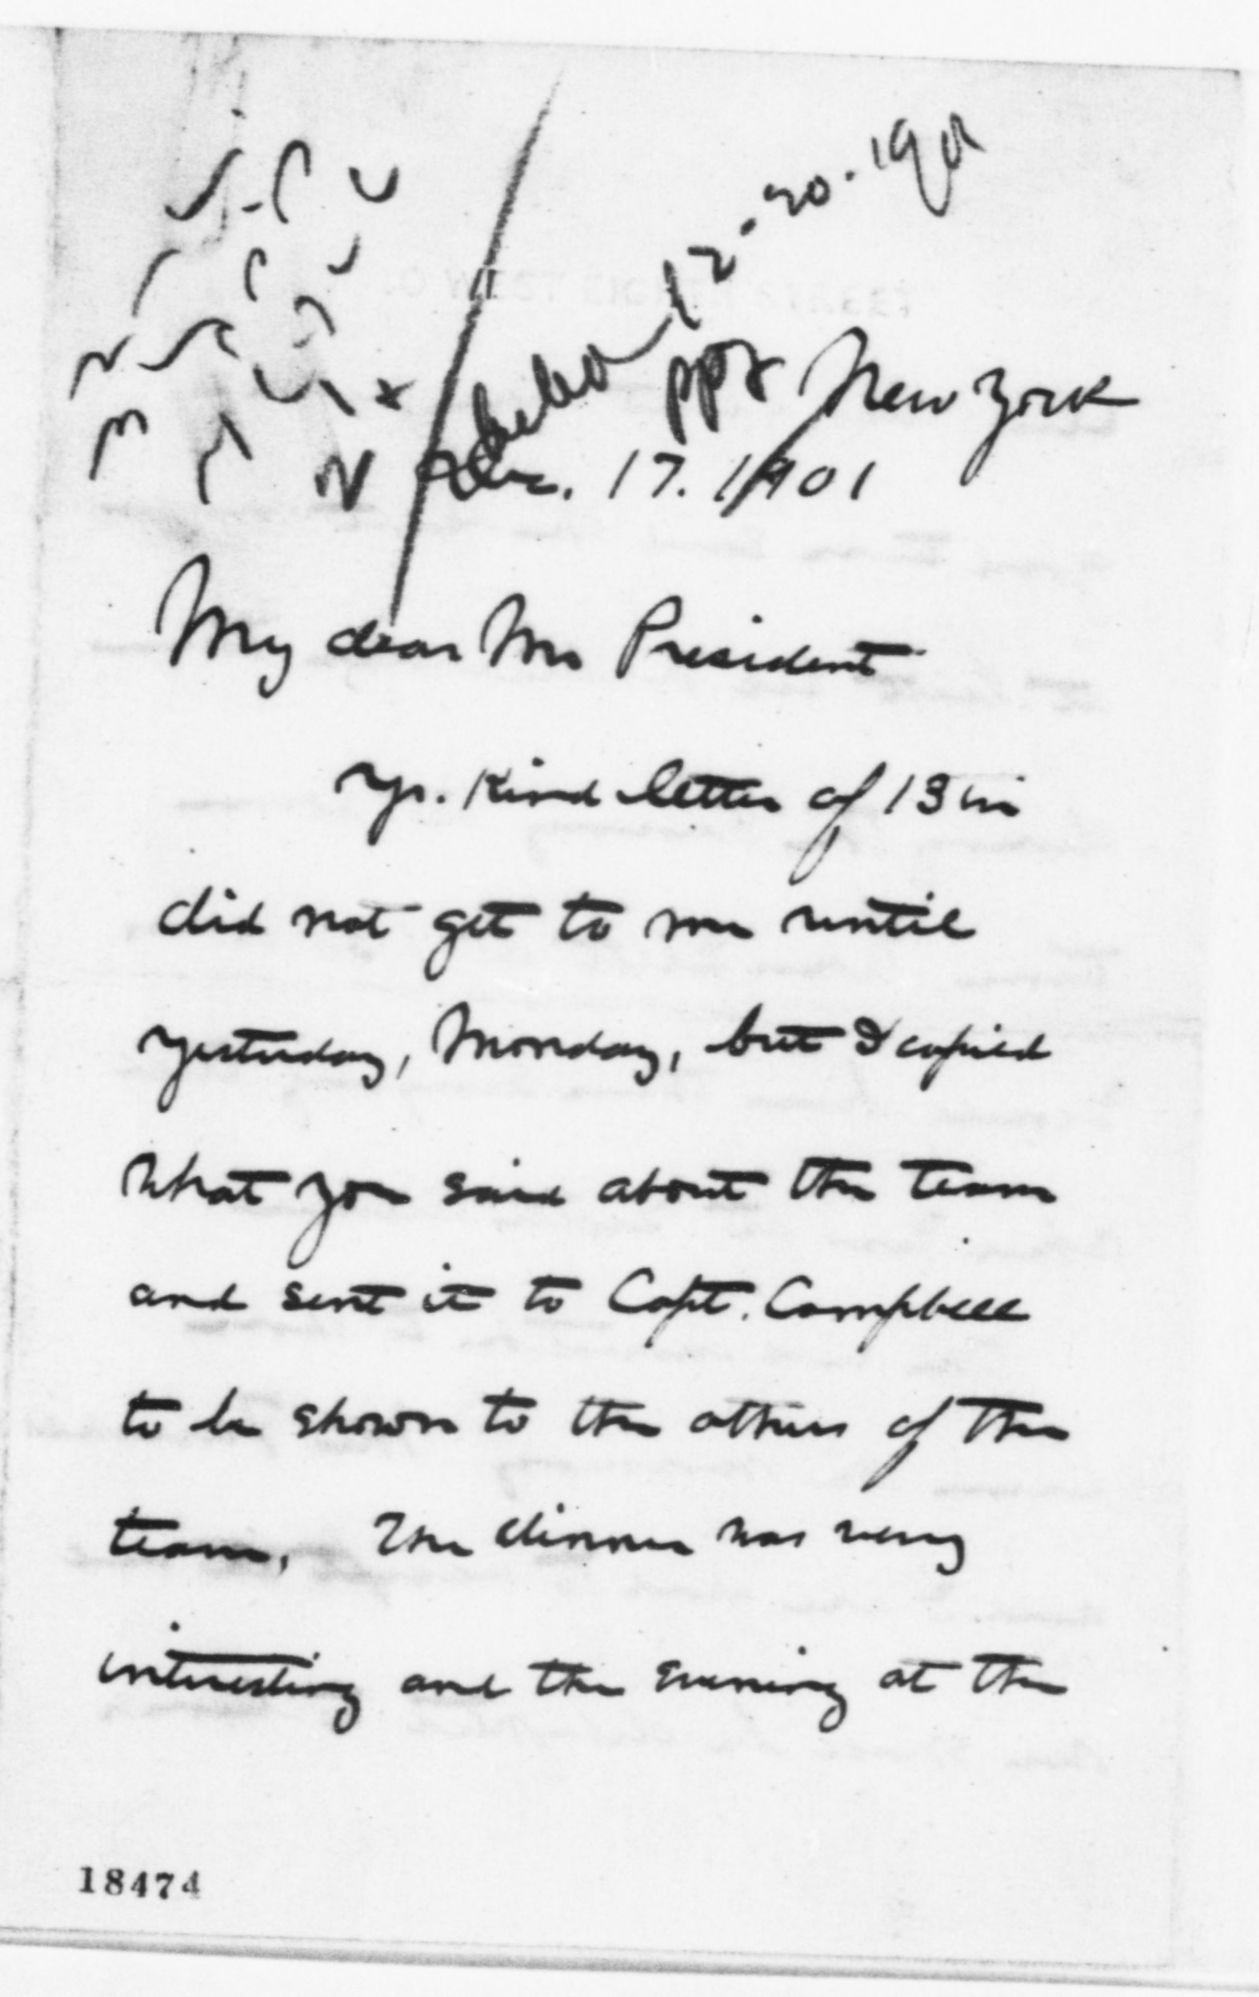 Ackd 12-20-1901
ppF New York
Dec. 17. 1901
My dear Mr President
Yr. kind letter of 13 in
did not get to me until
yesterday, Monday, but I copied
what you said about the team
and sent it to Capt. Campbell
to be shown to the others of the
team. The dinner was very
interesting and the evening at the
18474